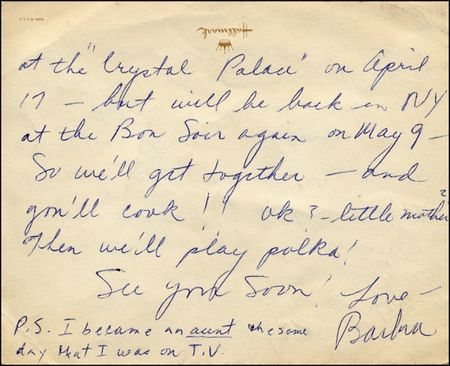 Hallmark
at the "Crystal Palace" on April
17 — but will be back in NY
at the Bon Soir again on May 9 —
So we'll get together — and
you'll cook!! ok? — little mother?
Then we'll play polka!
See you Soon! Love —
Barbra
P.S. I became an aunt the same
day that I was on T.V.